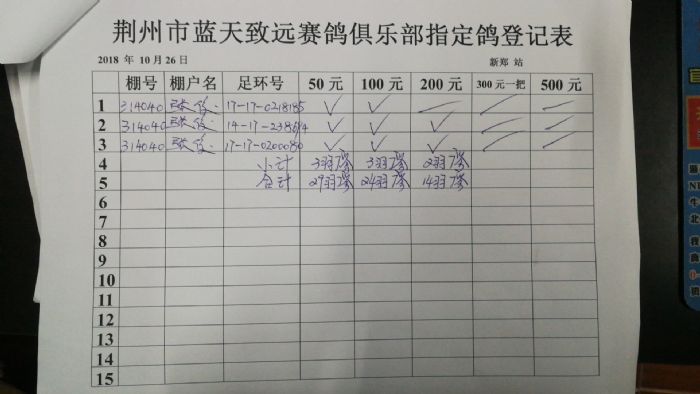 荆州市蓝天致远赛鸽俱乐部指定鸽登记表
2018 年 10 月 26 日 新郑 站
棚号 棚户名 足环号 50 元 100 元 200 元 300 元一把 500 元
1 314040 17-17-0218185 ✓ ✓ — — —
2 314040 ✓ ✓ ✓ — —
3 314040 17-17-0200080 ✓ ✓ ✓ — —
4 小计 3羽 3羽 2羽
5 合计 29羽 24羽 14羽
6
7
8
9
10
11
12
13
14
15